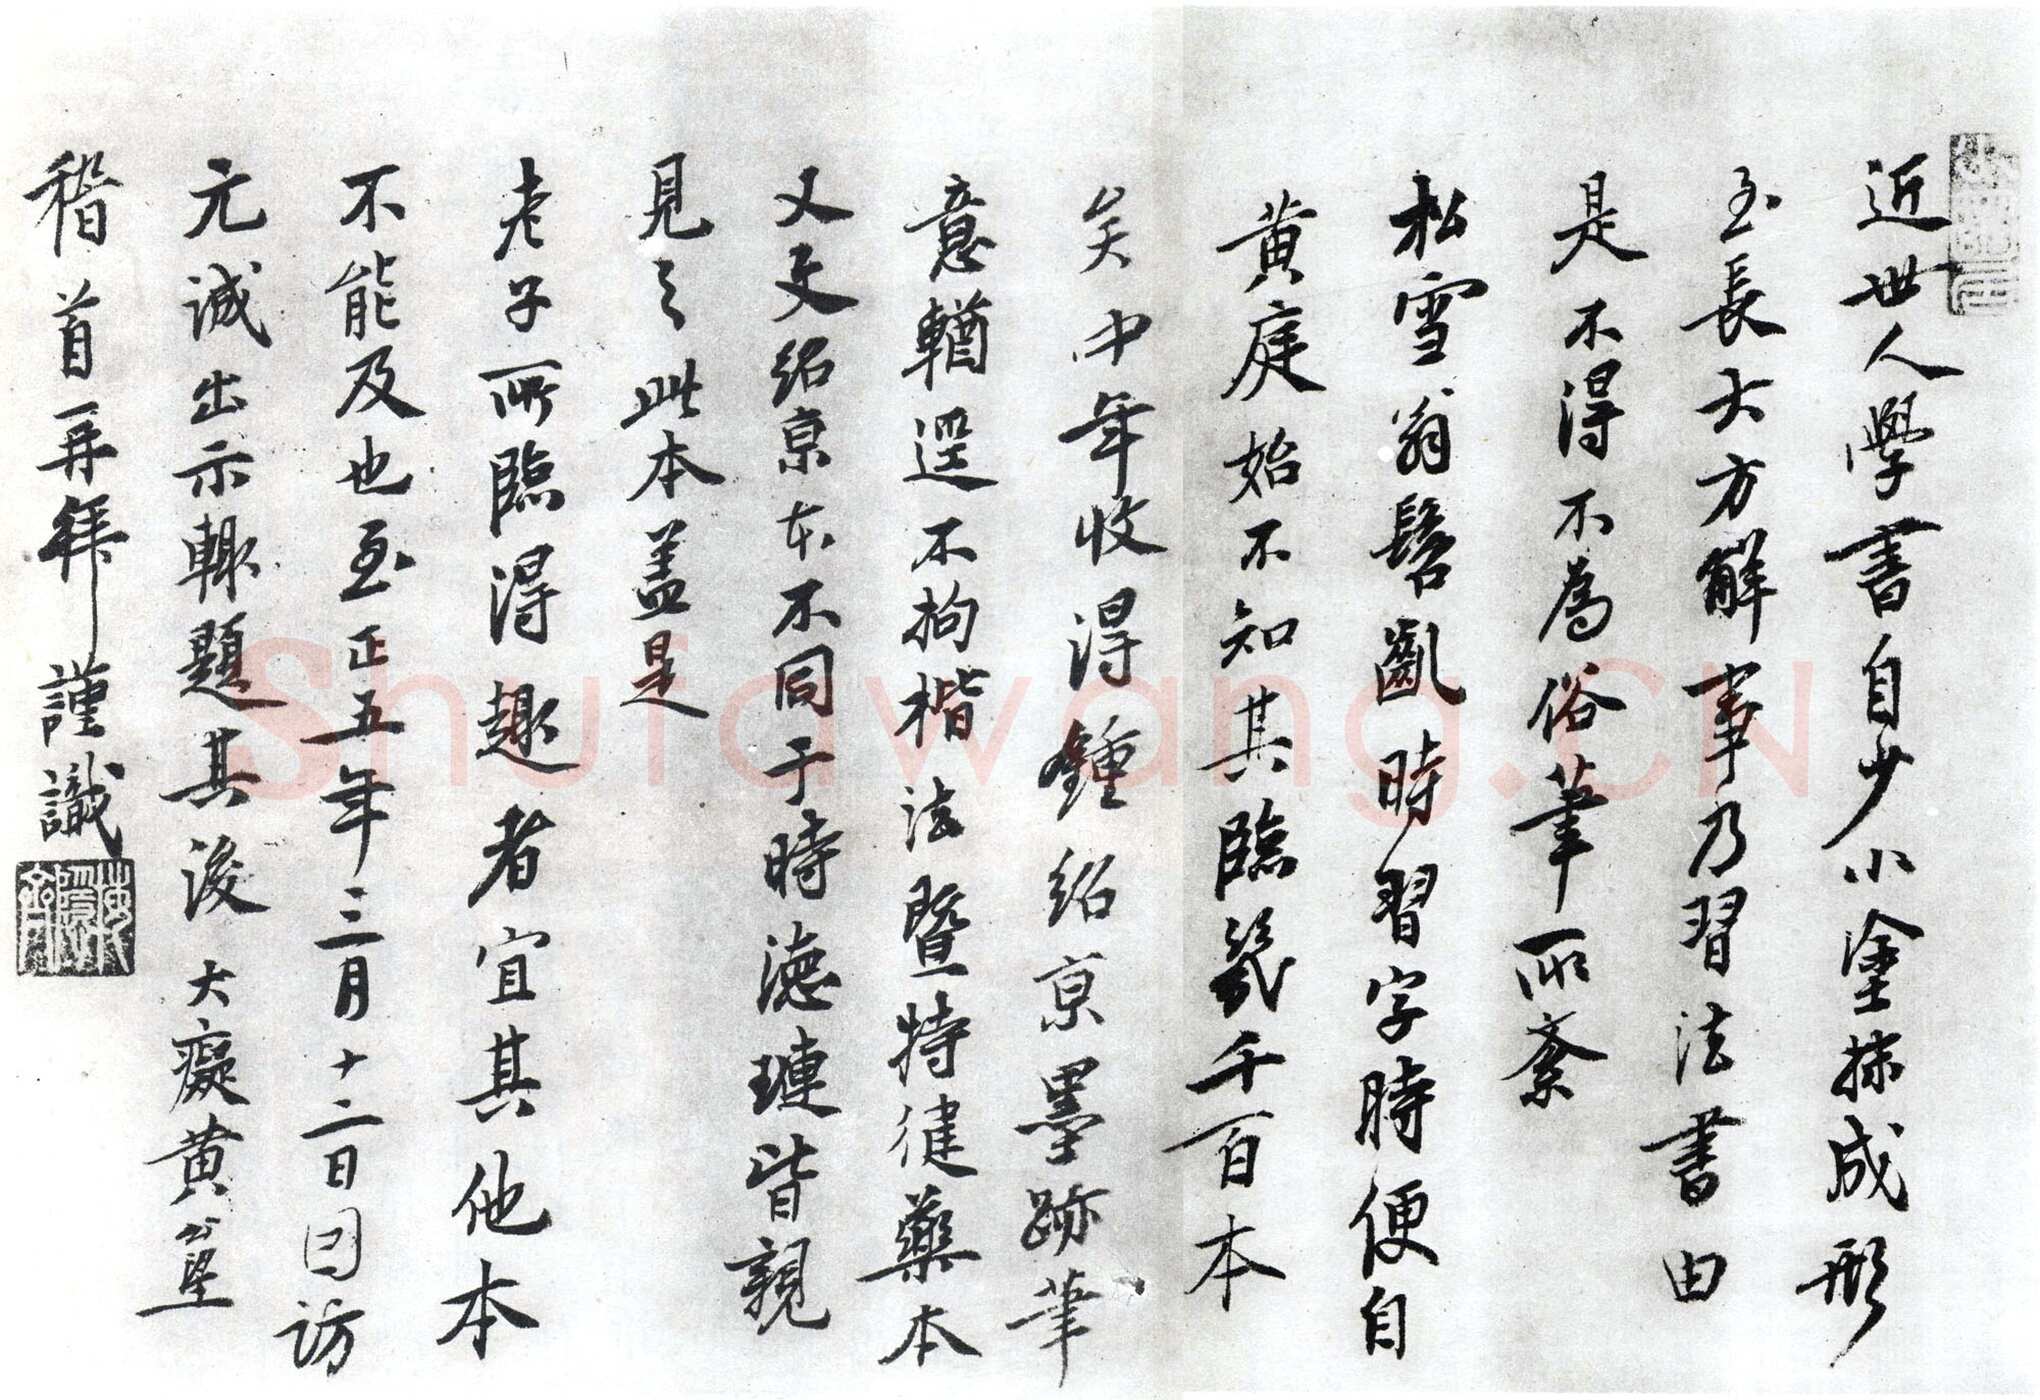 近世人學書自少小塗抹成形
至長大方解事乃習法書由
是不得不為俗筆所紊
松雪翁髫齓時習字時便自
黃庭始不知其臨幾千百本
矣中年收得鍾紹京墨跡筆
意輶逕不拘楷法暨特健藥本
又文紹京本不同于時德璉皆親
見之此本蓋是
老子所臨得趣者宜其他本
不能及也至正五年三月十二日因訪
元誠出示輒題其後大癡黃公望
稽首再拜謹識
Shufawang.CN